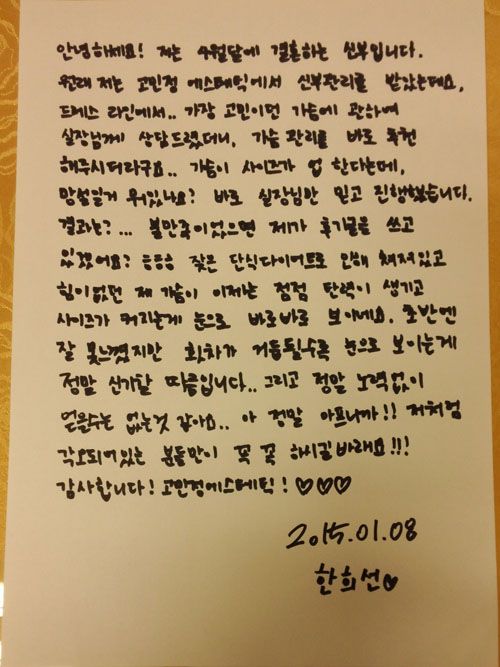 안녕하세요! 저는 4월달에 결혼하는 신부입니다.
원래 저는 고민정 에스테틱에서 신부관리를 받았는데요,
드레스 라인에서.. 가장 고민이던 가슴에 관하여
실장님께 상담드렸더니, 가슴 관리를 바로 추천
해주시더라구요.. 가슴이 사이즈가 업 한다는데,
망설일거 뭐있나요? 바로 실장님만 믿고 진행했습니다.
결과는?... 불만족이었으면 제가 후기글을 쓰고
있겠어요? 응응응 잦은 단식다이어트로 인해 쳐져있고
힘이없던 제 가슴이 이제는 점점 탄력이 생기고
사이즈가 커지는게 눈으로 바로바로 보이네요. 초반엔
잘 못느꼈지만 횟차가 거듭될수록 눈으로 보이는게
정말 신기할 따름입니다.. 그리고 정말 노력없이
얻을수는 없는것 같아요.. 아 정말 아프니까!! 저처럼
각오되어있는 분들만이 꼭 꼭 하시길바래요!!!
감사합니다! 고민정에스테틱! ♡♡♡
2015.01.08
한희선♡